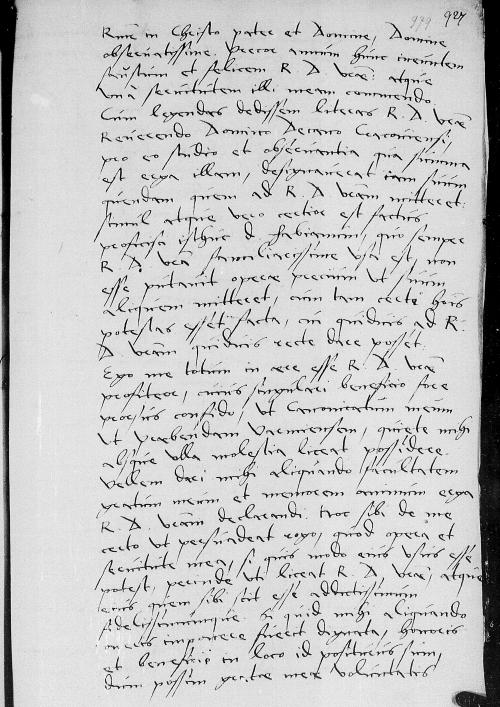 979 927
R.me in Christo pater et Domine, Domine
observatissime. Precor annum hunc ineuntem
faustum et felicem R. D. Vrae: atque
una servitutem illi meam commendo.
Cum legendas dedissem literas R. D. Vrae
Reverendo Domino Decano Cracoviensi,
pro eo studio et observantia qua summa
est erga illam, designaverat iam suum
quendam quem ad R. D. Vram mitteret:
simul atque vero certior est factus
proficisci isthuc d. Fabianum, quo semper
R. D. Vra familiarissime usa est, non
esse putavit operae precium ut suum
aliquem mitteret, cum tam certi hominis
potestas esset facta, cui quidvis ad R.
D. Vram quidvis recte dare posset.
Ego me totum in aere esse R. D. Vrae
profiteor, cuius singulari beneficio fore
prorsus confido, ut Canonicatum meum
ut praebendam Varmiensem, quiete mihi
absque ulla molestia liceat possidere.
Vellem dari mihi aliquando facultatem
gratum meum et memorem animum erga
R. D. Vram declarandi. Hoc sibi de me
certo ut persuadeat rogo, quod opera et
servitute mea, si quis modo eius usus esse
potest, perinde uti liceat R. D. Vrae, atque
eius quem sibi scit esse addictissimum
fidelissimumque. Si quid mihi aliquando
oneris imponere fuerit dignata, honoris
et beneficii in loco id positurus sum,
dum possim gratae meae voluntatis